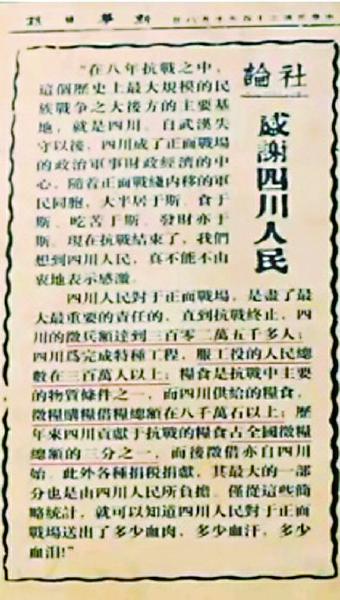 新華日報
社論
感謝四川人民
“在八年抗戰之中，
這個歷史上最大規模的民
族戰爭之大後方的主要基
地，就是四川。自武漢失
守以後，四川成了正面戰場
的政治軍事財政經濟的中
心，隨着正面戰綫內移的軍
民同胞，大半居于斯、食于
斯、吃苦于斯、發財亦于
斯。現在抗戰結束了，我們
想到四川人民，真不能不由
衷地表示感激。
四川人民對于正面戰場，是盡了最
大最重要的責任的，直到抗戰終止，四
川的徵兵額達到三百零二萬五千多人；
四川爲完成特種工程，服工役的人民總
數在三百萬人以上；糧食是抗戰中主要
的物質條件之一，而四川供給的糧食，
徵糧購糧借糧總額在八千萬石以上；歷
年來四川貢獻于抗戰的糧食占全國徵糧
總額的三分之一，而後徵借亦自四川
始。此外各種捐稅捐獻，其最大的一部
分也是由四川人民所負擔。僅從這些簡
略統計，就可以知道四川人民對于正面
戰場送出了多少血肉，多少血汗，多少
血淚!”